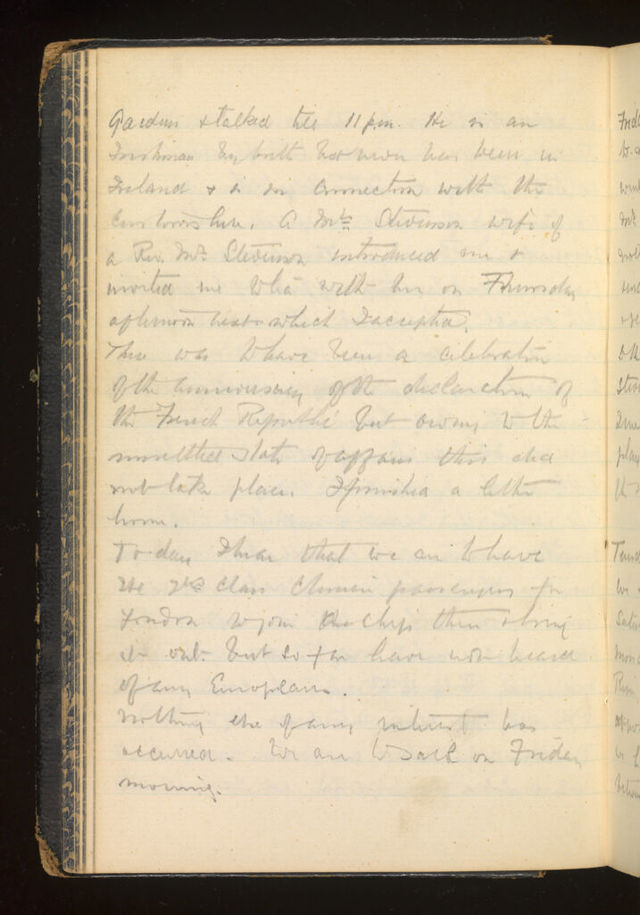 Gardens & talked till 11 pm. He is an
Irishman by birth but never has been in
Ireland & is in connection with the
Customs here. A Mrs Stevenson wife of
a Rev. Mr. Stevenson introduced me &
invited me to tea with her on Thursday
afternoon next which I accepted.
There was to have been a celebration
of the anniversary of the declaration of
the French Republic but owing to the
unsettled state of affairs this did
not take place. I finished a letter
home.
To-day I hear that we are to have
class Chinese passengers for
London to join ship there & bring
it out. but so far have not heard
of any Europeans.
Nothing else of any interest has
occurred. We are to sail on Friday
morning.